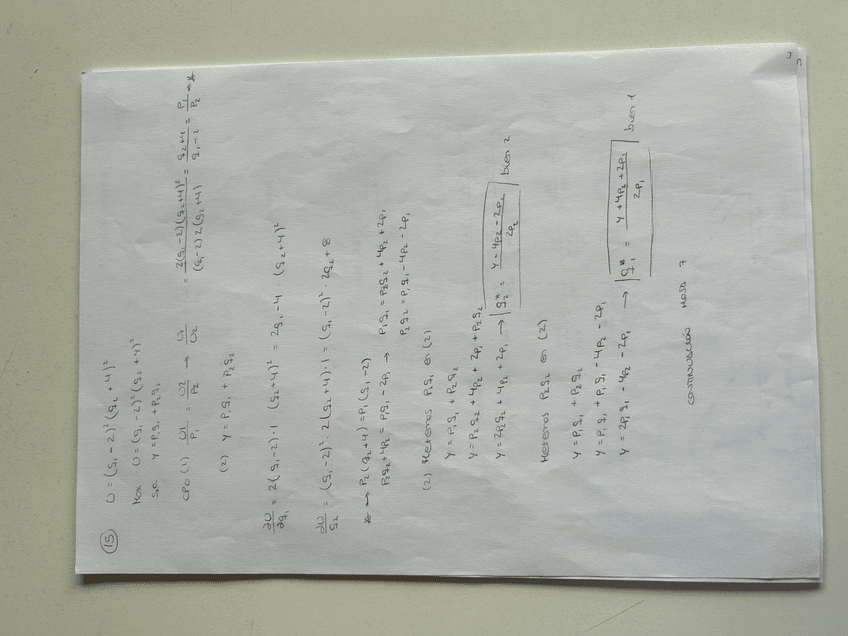 15 U = (q₁ - 2)² (q₂ + 4)²
Max U = (q₁ - 2)² (q₂ + 4)²
s.a Y = P₁q₁ + P₂q₂
CPO (1) U1/P₁ = U2/P₂ → U1/U2 = 2(q₁-2)(q₂+4)²/(q₁-2)2(q₂+4) = q₂+4/q₁-2 = P₁/P₂ → *
(2) Y = P₁q₁ + P₂q₂
∂U/∂q₁ = 2(q₁-2)·1 (q₂+4)² = 2q₁-4 (q₂+4)²
∂U/q₂ = (q₁-2)²·2(q₂+4)·1 = (q₁-2)²·2q₂+8
* → P₂(q₂+4) = P₁(q₁-2)
P₂q₂+4P₂ = P₁q₁-2P₁ → P₁q₁ = P₂q₂+4P₂+2P₁
P₂q₂ = P₁q₁-4P₂-2P₁
(2) Metemos P₁q₁ en (2)
Y = P₁q₁ + P₂q₂
Y = P₂q₂ + 4P₂ + 2P₁ + P₂q₂
Y = 2P₂q₂ + 4P₂ + 2P₁ → q₂* = Y-4P₂-2P₁/2P₂ bien 2
Metemos P₂q₂ en (2)
Y = P₁q₁ + P₂q₂
Y = P₁q₁ + P₁q₁ - 4P₂ - 2P₁
Y = 2P₁q₁ - 4P₂ - 2P₁ → q₁* = Y+4P₂+2P₁/2P₁ bien 1
CONTINUACIÓN HOJA 7